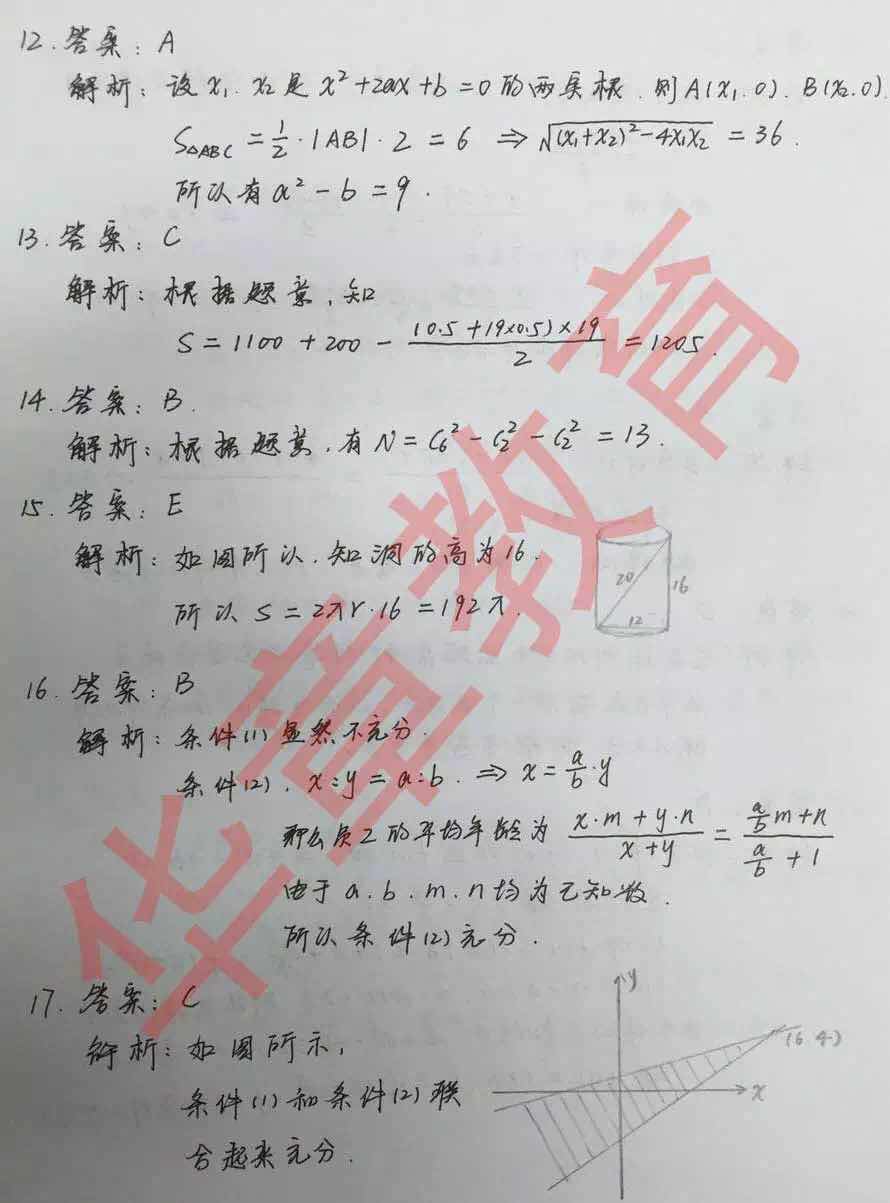 12. 答案: A
解析: 设 x₁. x₂ 是 x²+2ax+b=0 的两实根. 则 A(x₁.0). B(x₂.0).
S△ABC = 1/2 · |AB| · 2 = 6 ⇒ √((x₁+x₂)²-4x₁x₂) = 36.
所以有 a²-b=9.
13. 答案: C
解析: 根据题意, 知
S = 1100 + 200 - (0.5+19×0.5)×19/2 = 1205.
14. 答案: B.
解析: 根据题意, 有 N = C₆² - C₂² - C₂² = 13.
15. 答案: E
解析: 如图所以, 知洞的高为16.
20
16
12
所以 S = 2πr·16 = 192π.
16. 答案: B
解析: 条件(1) 显然不充分.
条件(2). x:y = a:b. ⇒ x = a/b·y
那么员工的平均年龄为 (x·m+y·n)/(x+y) = (a/b m+n)/(a/b+1)
由于 a.b.m.n 均为已知数.
所以条件(2) 充分.
17. 答案: C
y
解析: 如图所示,
(6 4)
x
条件(1) 和条件(2) 联
合起来充分.
华章教育